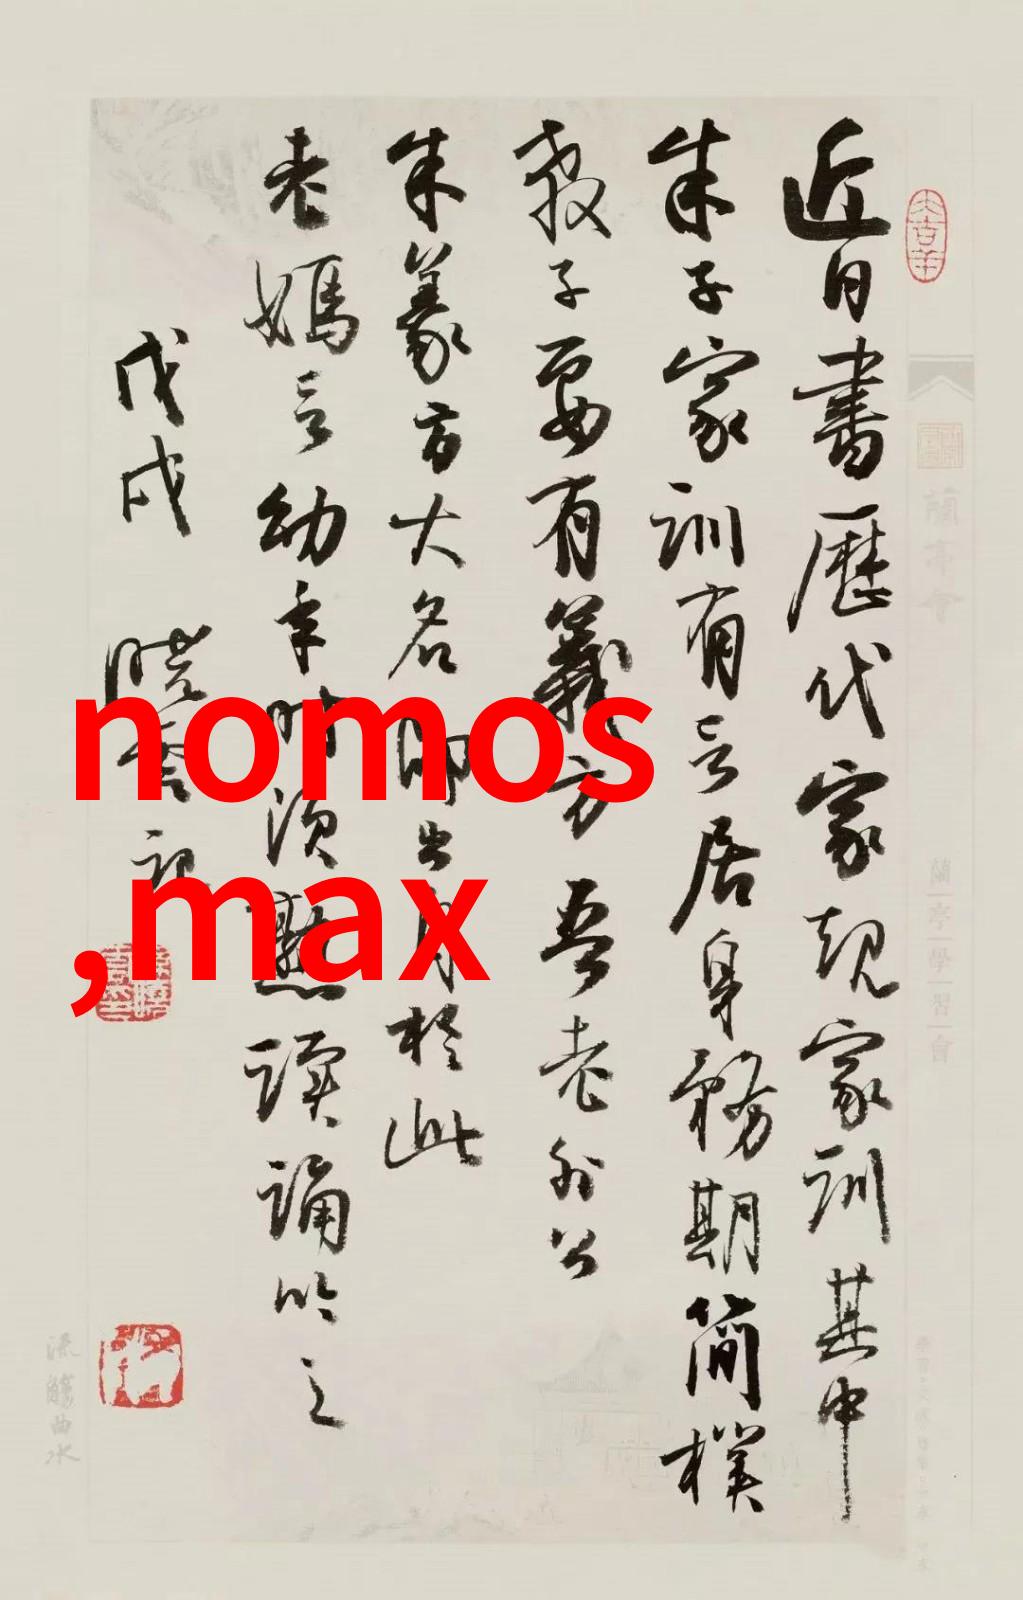 近日書歷代家規家訓其中
朱子家訓有言居身務期簡樸
教子要有義方吾老外公
朱篆方大名即出自於此
老媽言幼年時須熟讀誦吟之
戊戌 曉雲記
nomos
,max
蘭亭會
蘭亭學習會
流觴曲水